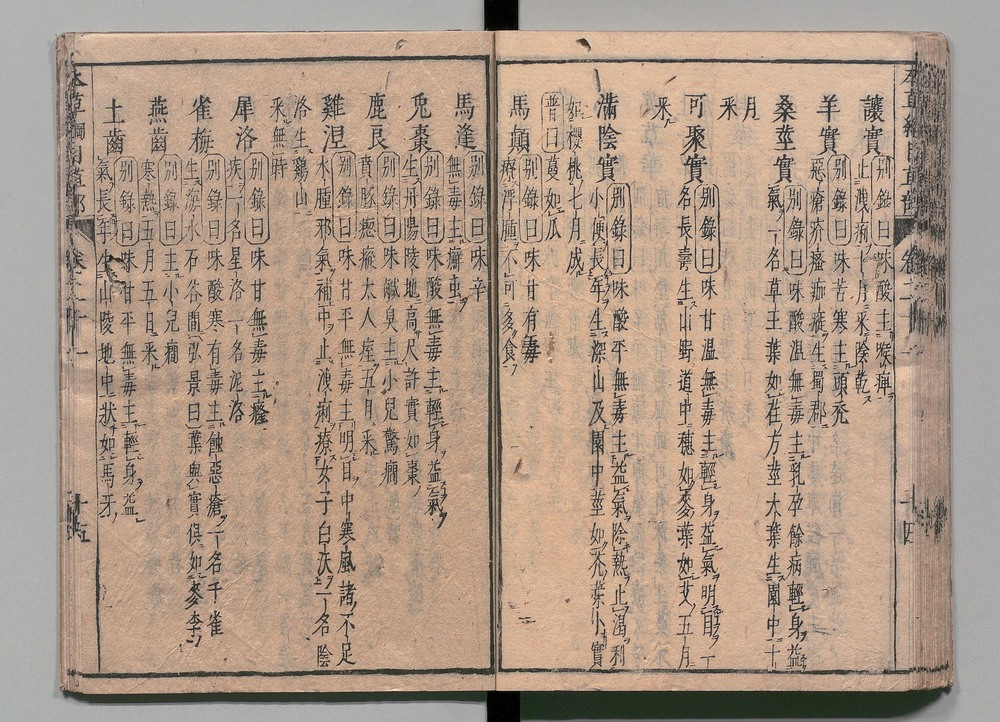 讓實 别錄曰味酸主喉痺
止洩痢十月采陰乾
羊實 别錄曰味苦寒主頭禿
惡瘡疥瘙痂癬生蜀郡
桑莖實 别錄曰味酸温無毒主乳孕餘病輕身益
氣一名草王葉如荏方莖大葉生園中十
月采
可聚實 别錄曰味甘温無毒主輕身益氣明目一
名長壽生山野道中穗如麥葉如艾五月
采
滿陰實 别錄曰味酸平無毒主益氣除熱止渴利
小便長年生深山及園中莖如芥葉小實
如櫻桃七月成
普曰蔓如瓜
馬顛 别錄曰味甘有毒
療浮腫不可多食
馬逢 别錄曰味辛
無毒主癬虫
兎棗 别錄曰味酸無毒主輕身益氣
生丹陽陵地高尺許實如棗
鹿良 别錄曰味鹹臭主小兒驚癇
賁豚瘛瘲大人痓五月采
雞涅 别錄曰味甘平無毒主明目中寒風諸不足
水腫邪氣補中止洩痢療女子白沃一名陰
洛生雞山
采無時
犀洛 别錄曰味甘無毒主癃
疾一名星洛一名泥洛
雀梅 别錄曰味酸寒有毒主蝕惡瘡一名千雀
生海水石谷間弘景曰葉與實俱如麥李
燕齒 别錄曰主小兒癇
寒熱五月五日采
土齒 别錄曰味甘平無毒主輕身益
氣長年生山陵地中狀如馬牙